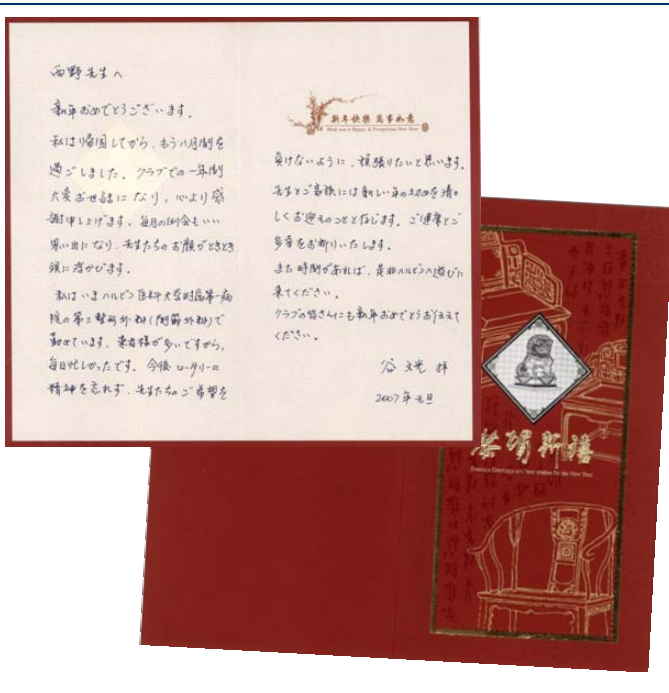 西野先生へ
新年おめでとうございます。
私は帰国してから、もう八月間を
過ごしました。クラブでの一年間
大変お世話になり、心より感
謝申し上げます。毎月の例会もいい
思い出になり、先生たちのお顔がときどき
頭に浮かびます。
私はいまハルビン医科大学附属第一病
院の第三整形外科(関節外科)で
勤めています。患者様が多いですから、
毎日忙しかったです。今後ロータリーの
精神を忘れず、先生たちのご希望を
新年快樂 萬事如意
Wish you a Happy & Prosperous New Year
負けないように、頑張りたいと思います。
先生とご家族には新しい年の
しくお迎えのことと存じます。ご健康とご
多幸をお祈りいたします。
また時間があれば、是非ハルビンへ遊びに
来てください。
クラブの皆さんにも新年おめでとうお伝えて
ください。
谷 拝
2007年元旦
恭賀新禧
Season's Greetings and best wishes for the New Year